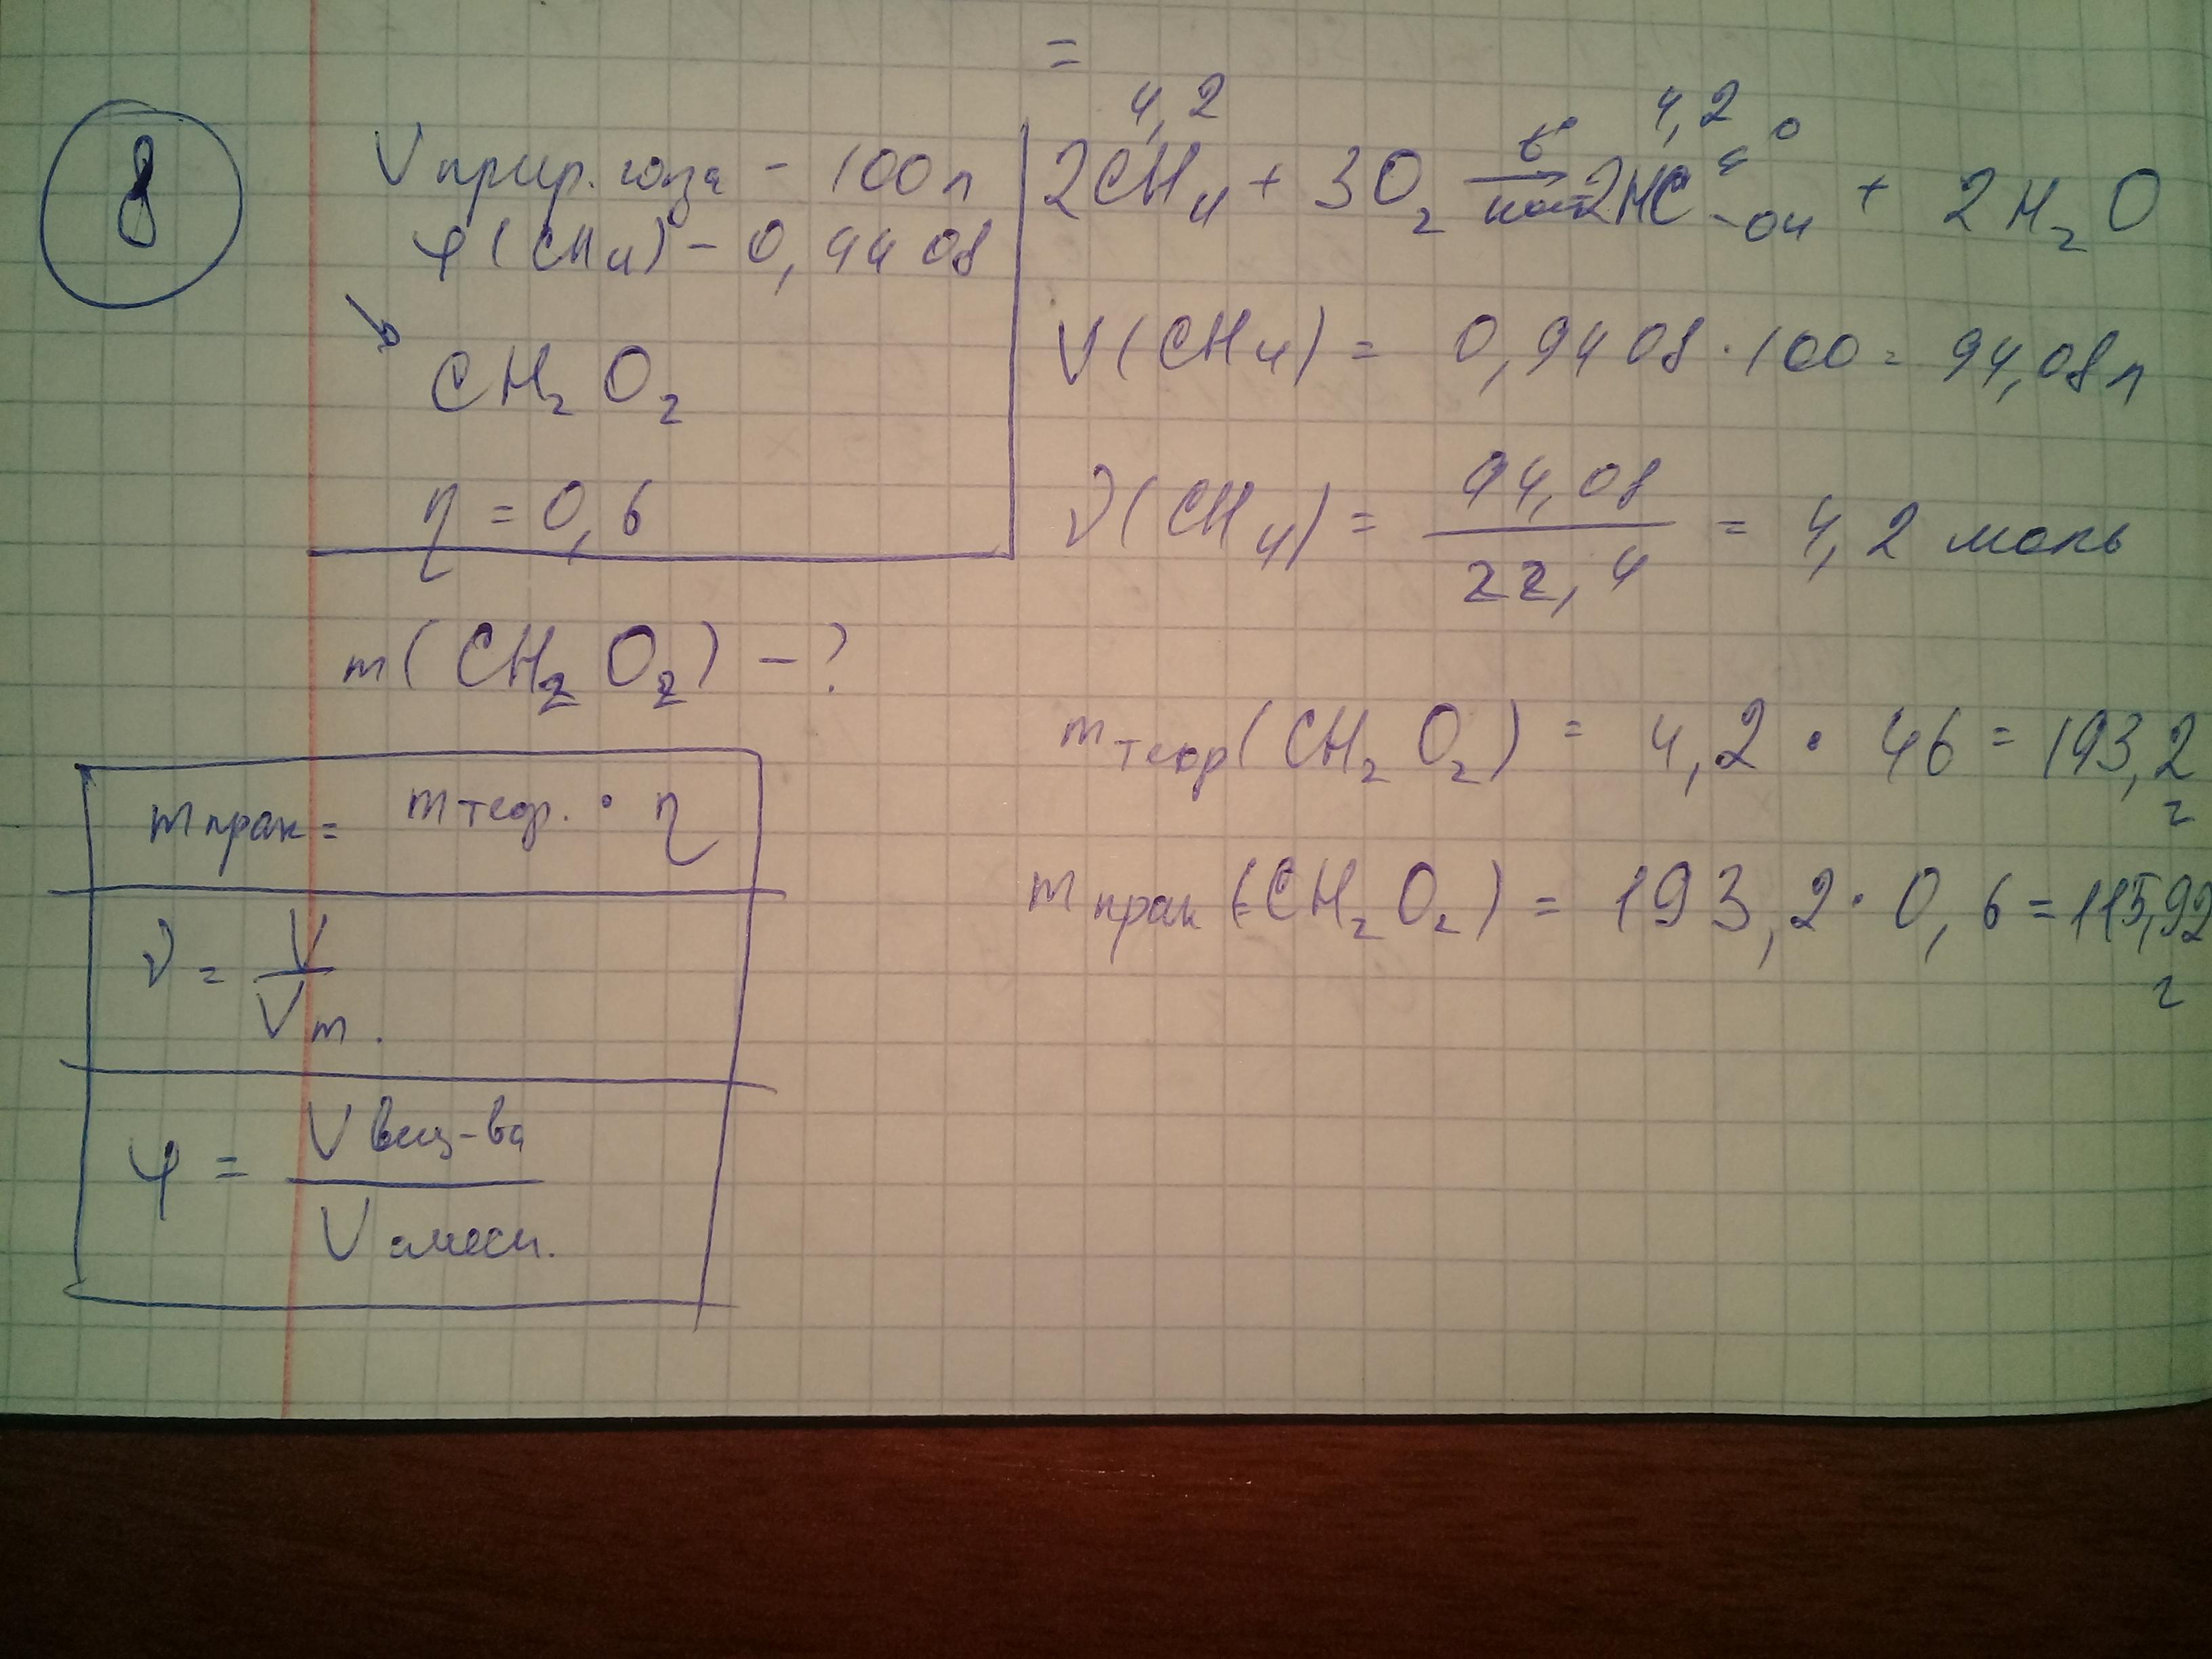 8
V прир. газа - 100 л
φ(CH₄) - 0,9408
↘
CH₂O₂
η = 0,6
m(CH₂O₂) - ?
m прак = m теор. · η
ν = V / Vm.
φ = V вещ-ва / V смеси.
=
4,2 4,2
2CH₄ + 3O₂ →(t°, кат) 2HC=O-OH + 2H₂O
V(CH₄) = 0,9408 · 100 = 94,08 л
ν(CH₄) = 94,08 / 22,4 = 4,2 моль
m теор(CH₂O₂) = 4,2 · 46 = 193,2 г
m прак(CH₂O₂) = 193,2 · 0,6 = 115,92 г